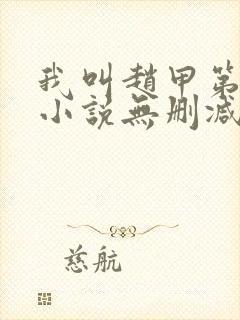 我叫趙甲第
小說無刪減
慈航